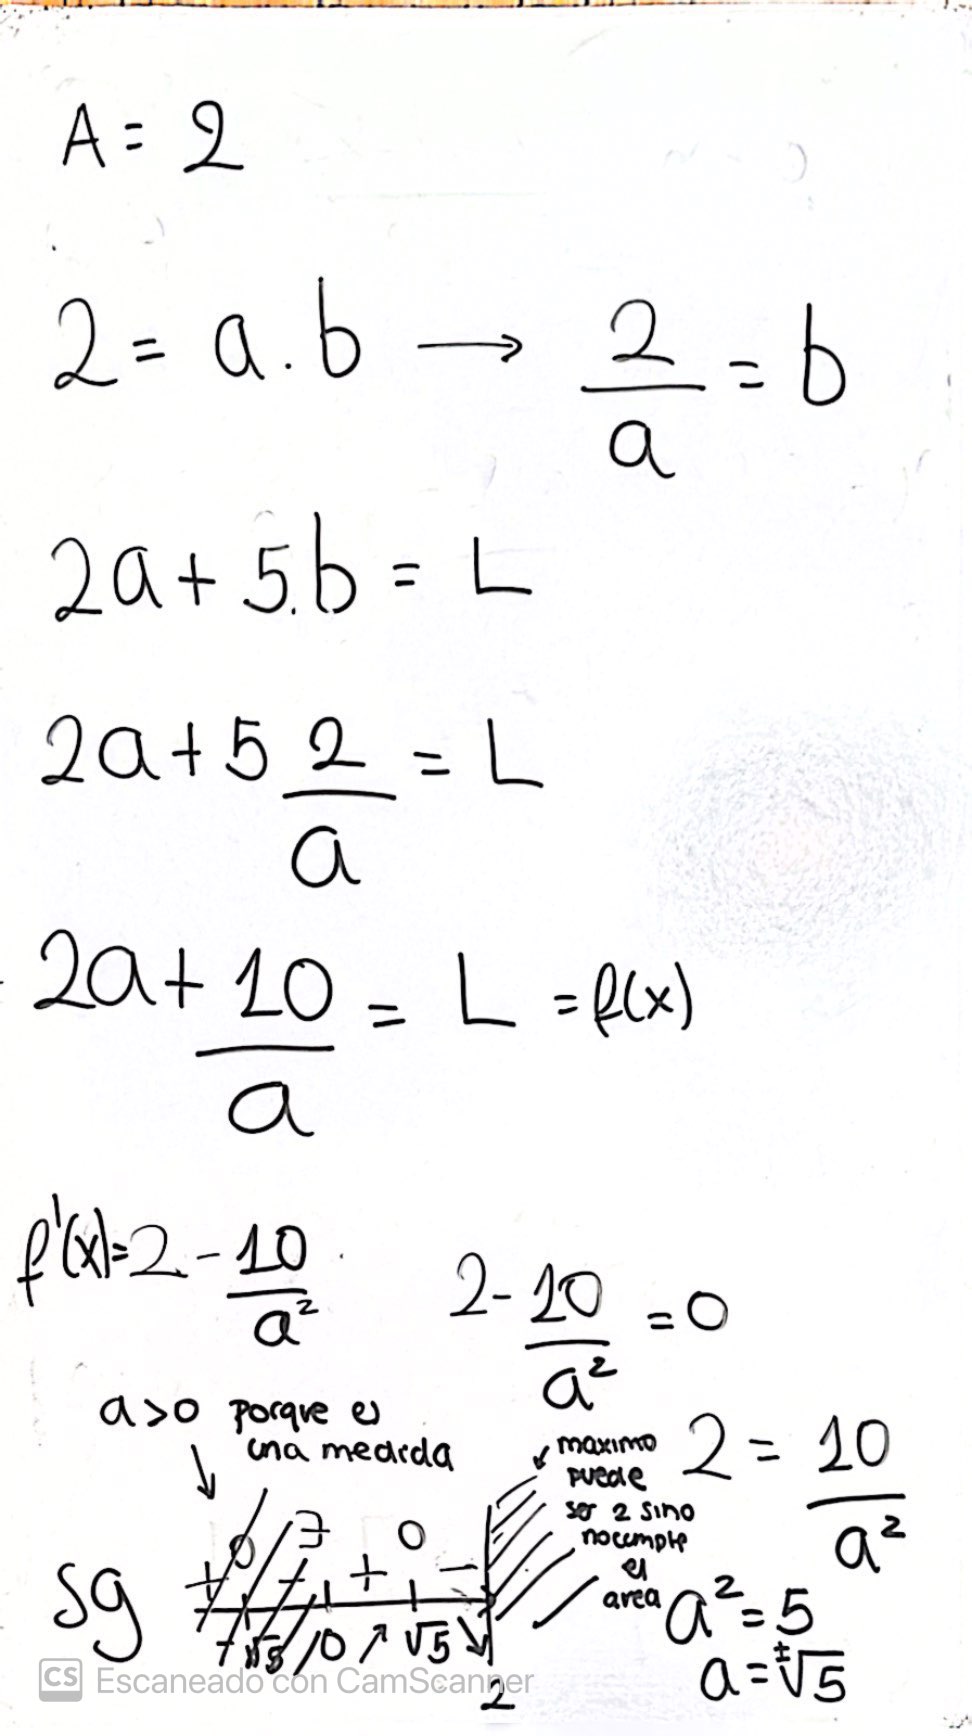 A = 2
2 = a . b → 2/a = b
2a + 5.b = L
2a + 5 2/a = L
2a + 10/a = L = f(x)
f'(x) = 2 - 10/a²
2 - 10/a² = 0
a > 0 porque es
una medida
maximo
puede
ser 2 sino
no cumple
el
area
2 = 10/a²
a² = 5
a = ±√5
sg + 0 - ∄ + 0 -
-√5 0 ↗ √5 ↘ 2
CS Escaneado con CamScanner